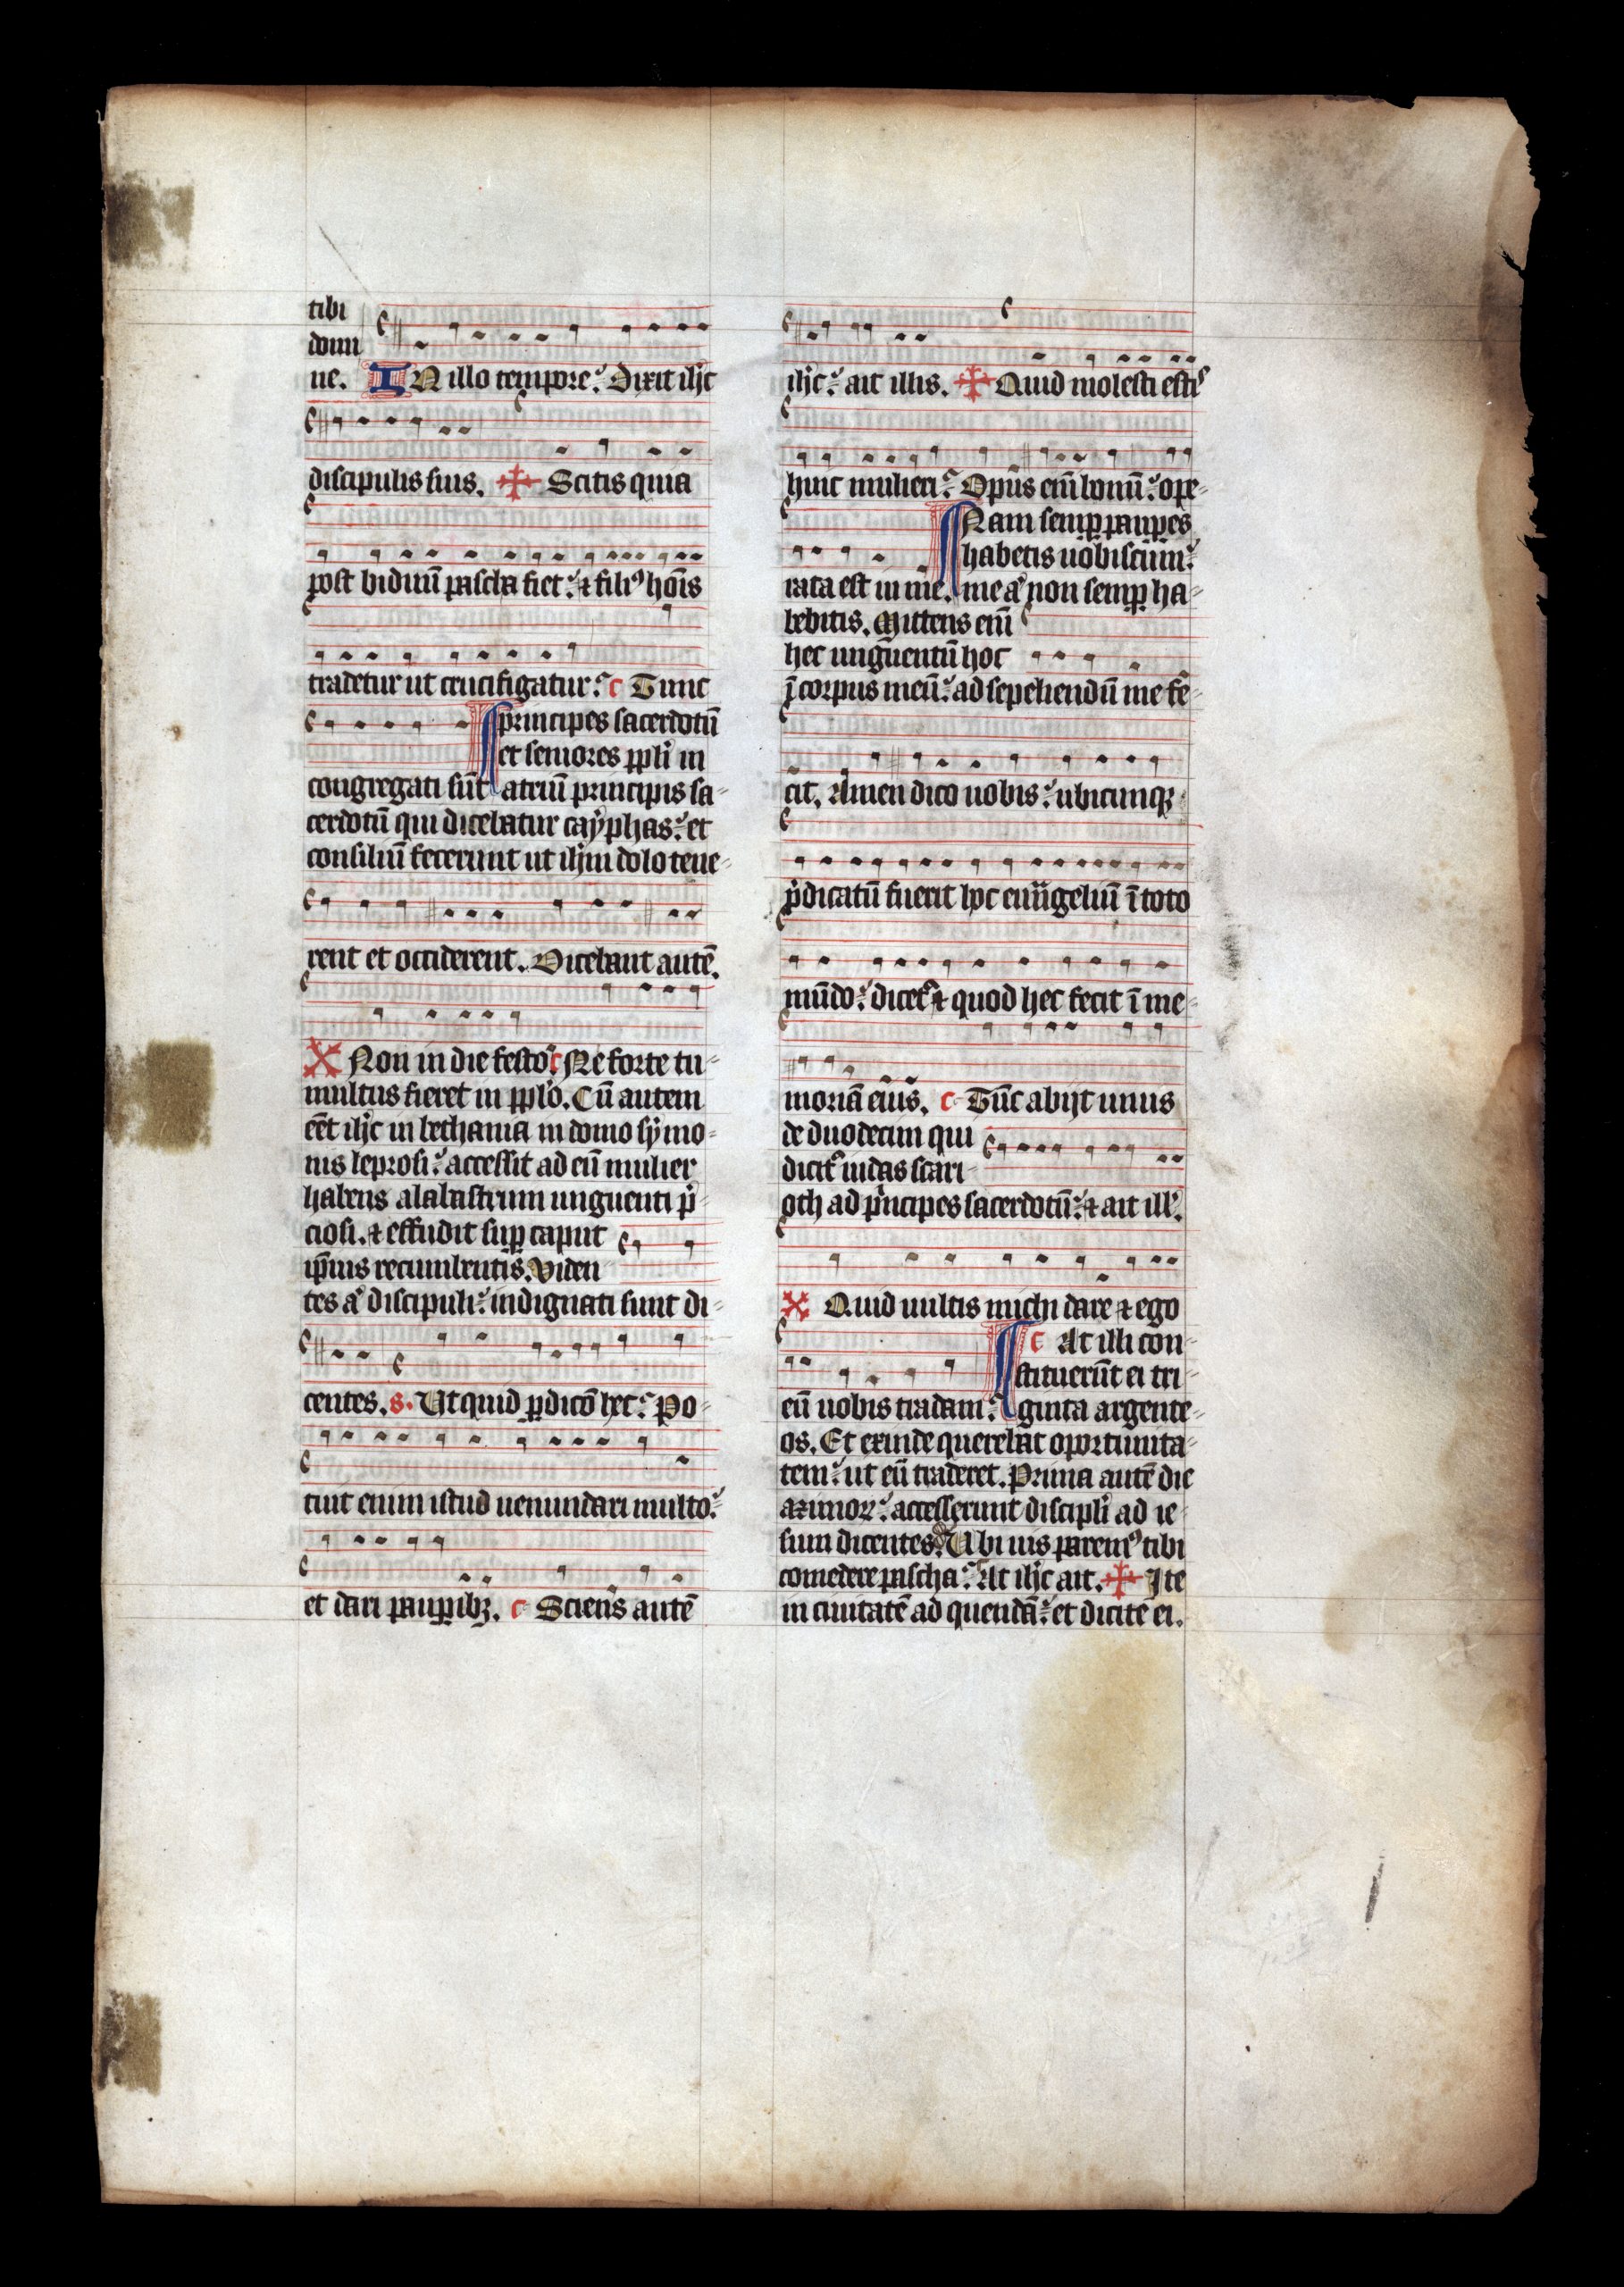 tibi
domi
ne. IN illo tempore: Dixit ihc
discipulis suis. ✠ Scitis quia
post biduū pascha fiet: ⁊ filiꝰ hoīs
tradetur ut crucifigatur: c Tunc
principes sacerdotū
et seniores ppli in
congregati sūt atriū principis sa-
cerdotū qui dicebatur cayphas: et
consiliū fecerunt ut ihm dolo tene-
rent et occiderent. Dicebant autē.
X Non in die festo: c Ne forte tu-
multus fieret in pplo. Cū autem
eēt ihc in bethania in domo symo-
nis leprosi: accessit ad eū mulier
habens alabastrum unguenti p̄-
ciosi. ⁊ effudit suꝑ caput
ip̄ius recumbentis. Viden
tes aͦ discipuli: indignati sunt di-
centes. s. Ut quid ꝑdicō hec: Po-
tuit enim istud uenundari multo:
et dari pauꝑibꝫ. c Sciens autē
ihc: ait illis. ✠ Quid molesti estiˢ
huic mulieri: Opus eni bonū: ope-
Nam semꝑ pauꝑes
habetis uobiscum:
rata est in me. me aͦ non semꝑ ha-
bebitis. Mittens eni
hec unguentū hoc
ī corpus meū: ad sepeliendū me fe-
cit. Amen dico uobis: ubicunqꝫ
p̄dicatū fuerit hoc euāngeliū ī toto
mūdo: dicetᷣ ⁊ quod hec fecit ī me-
moriā eius. c Tūc abijt unus
de duodecim qui
dicitᷣ iudas scari-
oth ad pͥncipes sacerdotū: ⁊ ait ill'.
X Quid uultis michi dare ⁊ ego
c At illi con-
stituerūt ei tri-
eū uobis tradam: ginta argente-
os. Et exinde querebat oportunita-
tem: ut eū traderet. Prima autē die
azimoꝝ: accesserunt discipli ad ie-
sum dicentes. Ubi uis paremꝰ tibi
comedere pascha: At ihc ait. ✠ Ite
in ciuitatē ad quendā: et dicite ei.